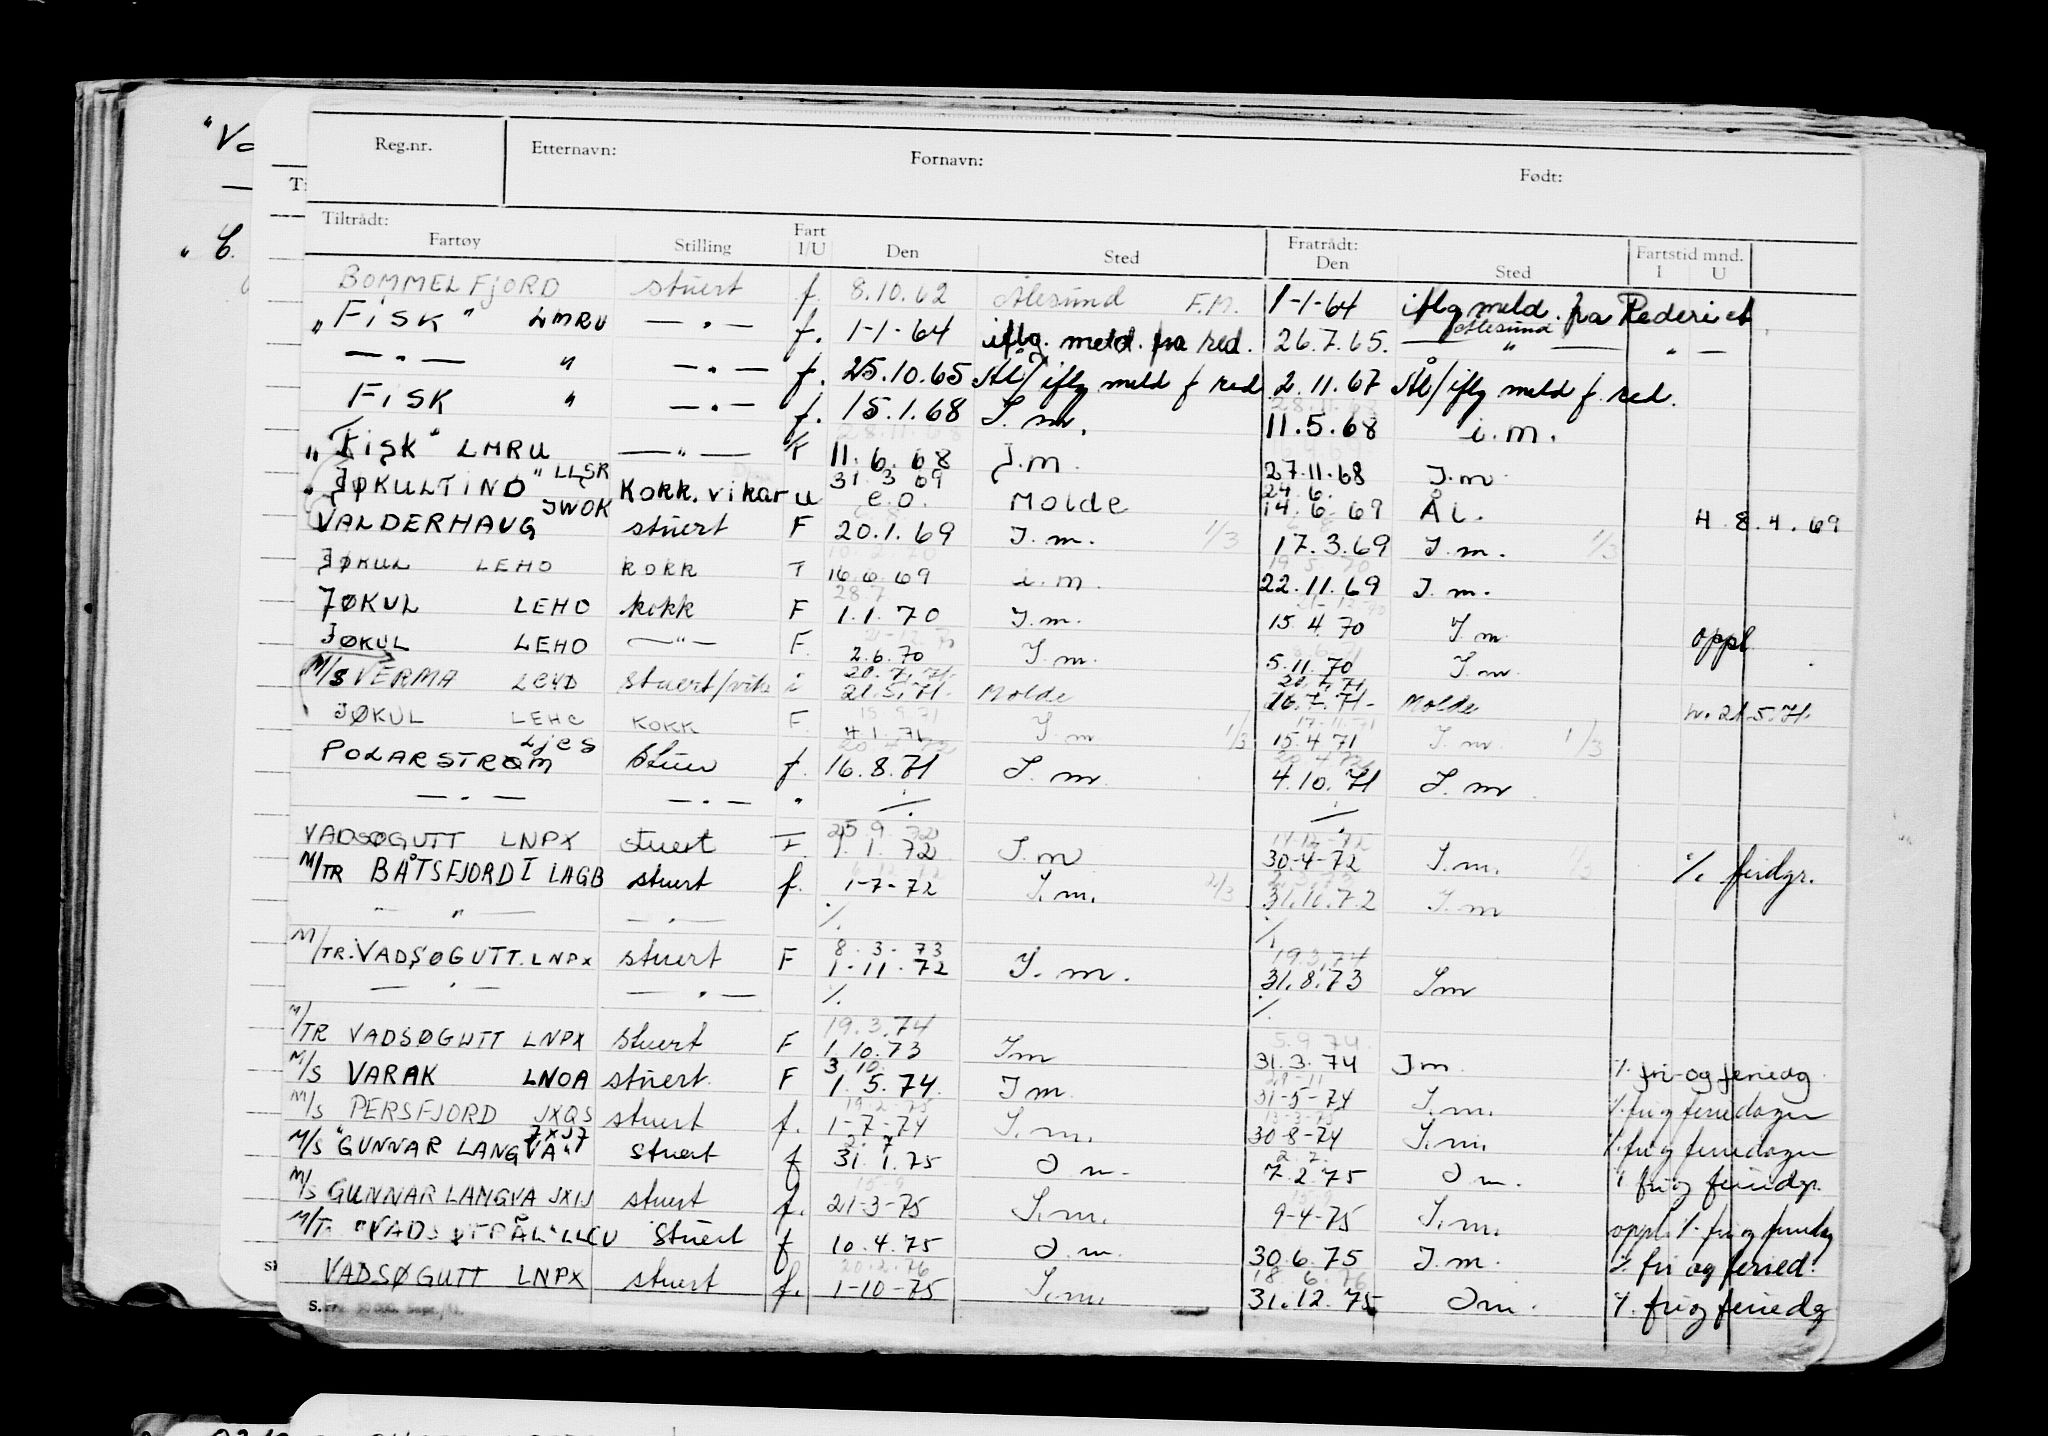 "Va
Reg.nr. Etternavn: Fornavn: Født:
Tiltrådt: Fratrådt: Fartstid mnd.
Fartøy Stilling Fart I/U Den Sted Den Sted I U
BØMMELFJORD stuert f. 8.10.62 Ålesund F.M. 1-1-64 iflg meld. fra Rederiet
"FISK" LMRU —"— f. 1-1-64 iflg. meld. fra red. 26.7.65. Ålesund — " — " —
—"— " —"— f. 25.10.65 Ål/iflg meld f red 2.11.67 Ål/iflg meld f. red.
FISK " —"— f. 15.1.68 I.m. 11.5.68 i.m.
"FISK" LMRU —"— F 11.6.68 I.m. 27.11.68 I.m.
"JØKULTIND" LLSR Kokk. vikar u 31.3.69 e.o. Molde 24.6. 14.6.69 ÅL. H. 8.4.69
VALDERHAUG JWOK stuert F 20.1.69 I.m. 1/3 17.3.69 I.m. 1/3
JØKUL LEHO kokk F 16.6.69 i.m. 22.11.69 I.m.
JØKUL LEHO kokk F 1.1.70 I.m. 15.4.70 I.m oppl.
JØKUL LEHO —"— F. 2.6.70 I.m. 5.11.70 I.m.
M/S VERMA LEYD stuert/vik i 20.7.71. 21.5.71. Molde 20.7.71 16.7.71- Molde h. 21.5.71.
JØKUL LEHO KOKK F. 4.1.71 I.m 1/3 15.4.71 I.m. 1/3
POLARSTRØM LJCS stuer f. 16.8.71 I.m. 4.10.71 I.m.
—"— —"— " ./. ./.
VADSØGUTT LNPX stuert F 25.9.72 1.1.72 I.m 30-4-72 I.m. ./. feridgr.
M/TR BÅTSFJORD I LAGB stuert f. 1-7-72 I.m. 2/3 31.10.72 I.m
— " — —"— ./. ./.
M/TR. VADSØGUTT. LNPX stuert F 8.3-73 1-11.72 I.m. 19.3.74 31.8.73 Im
— " — — " — ./. ./.
19.3.74 5.9.74.
M/TR VADSØGUTT LNPX stuert F 1.10.73 Im 31.3.74 Im ./. fri- og feriedg.
M/S VARAK LNOA stuert. F 3.10. 1.5.74. Im 31-5-74 I.m. ./. fri og feriedager
M/S PERSFJORD JXQS stuert f. 1-7-74 I.m. 30-8-74 I.m. ./. fri og feriedager
M/S "GUNNAR LANGVA" JXIJ stuert f 2.7 31.1.75 I m. 2.7. 7.2.75 I m. ./. fri og feriedgr.
M/S GUNNAR LANGVA JXIJ stuert f. 21-3-75 I.m. 9-4-75 I.m. oppl. ./. fri og feriedg
stuert f 10.4.75 I m. 30.6.75 I.m. ./. fri og feried.
VADSØGUTT LNPX stuert f. 20.2.76 1-10-75 I.m. 18.6.76 31.12.75 Im. ./. fri og feriedg